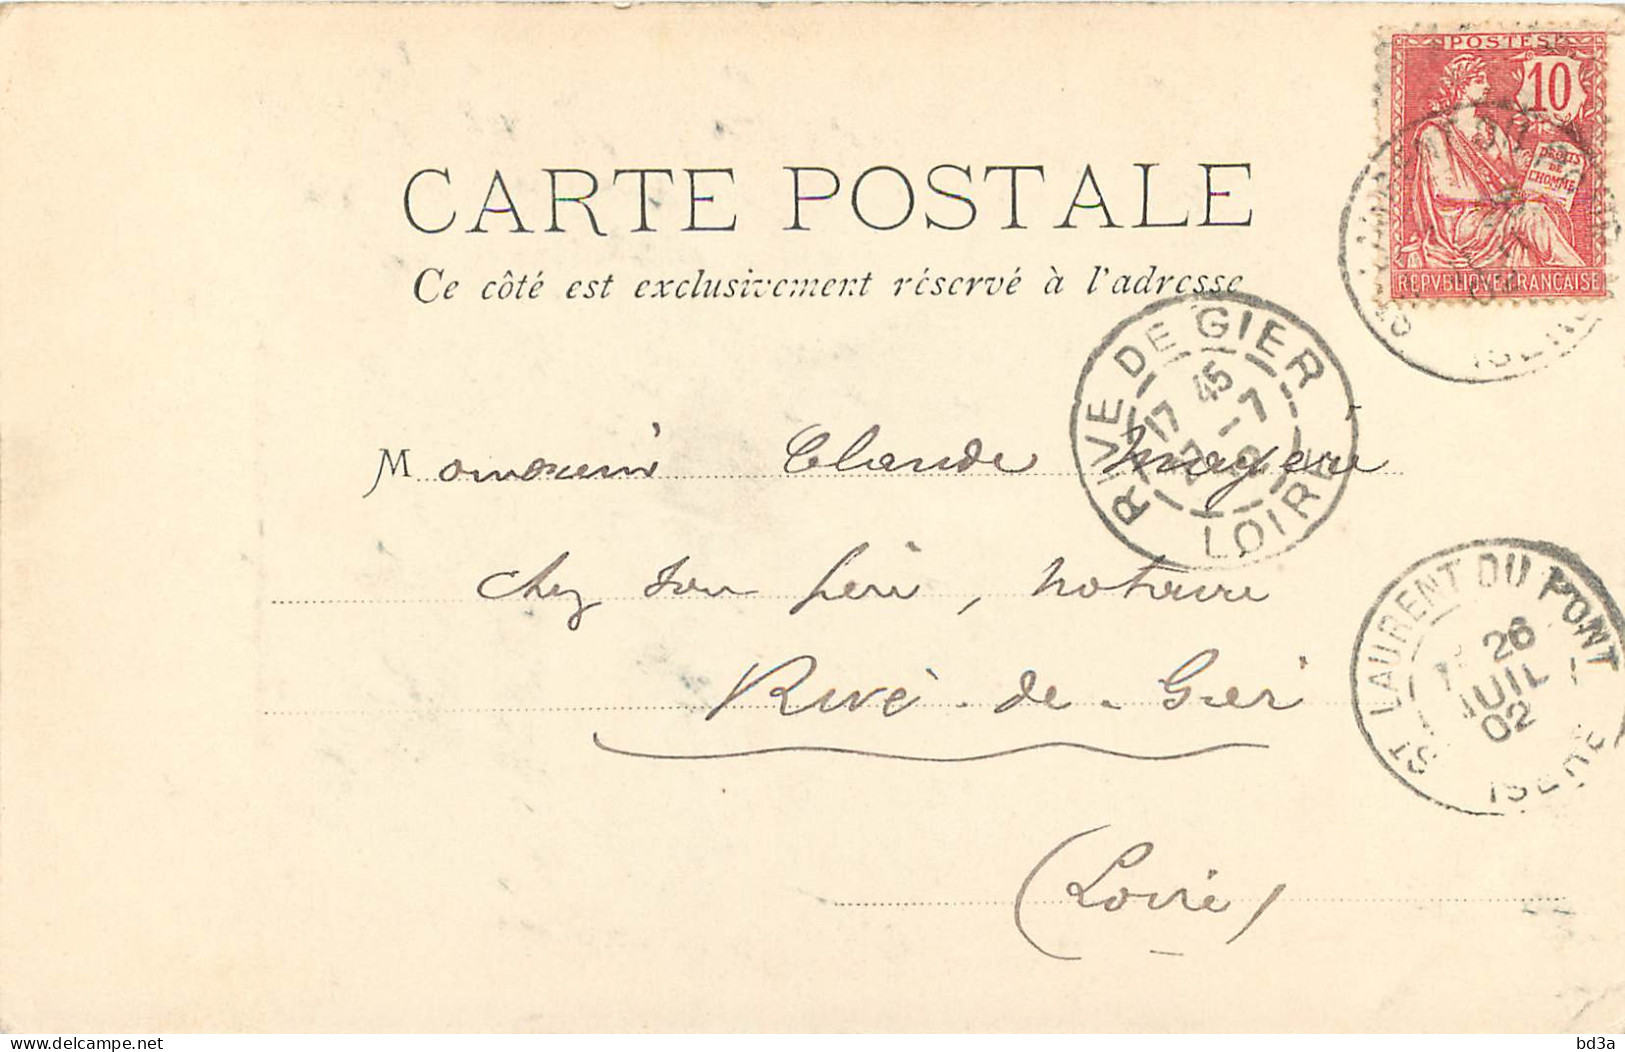 POSTES
10
DROITS
DE
L'HOMME
REPVBLIQVE FRANÇAISE
CARTE POSTALE
Ce côté est exclusivement réservé à l'adresse
RIVE DE GIER
17 45
27 - 7
LOIRE
Monsieur Claude
chez son père, notaire
Rive-de-Gier
(Loire)
ST LAURENT DU PONT
26
JUIL
02
ISERE
bd3a